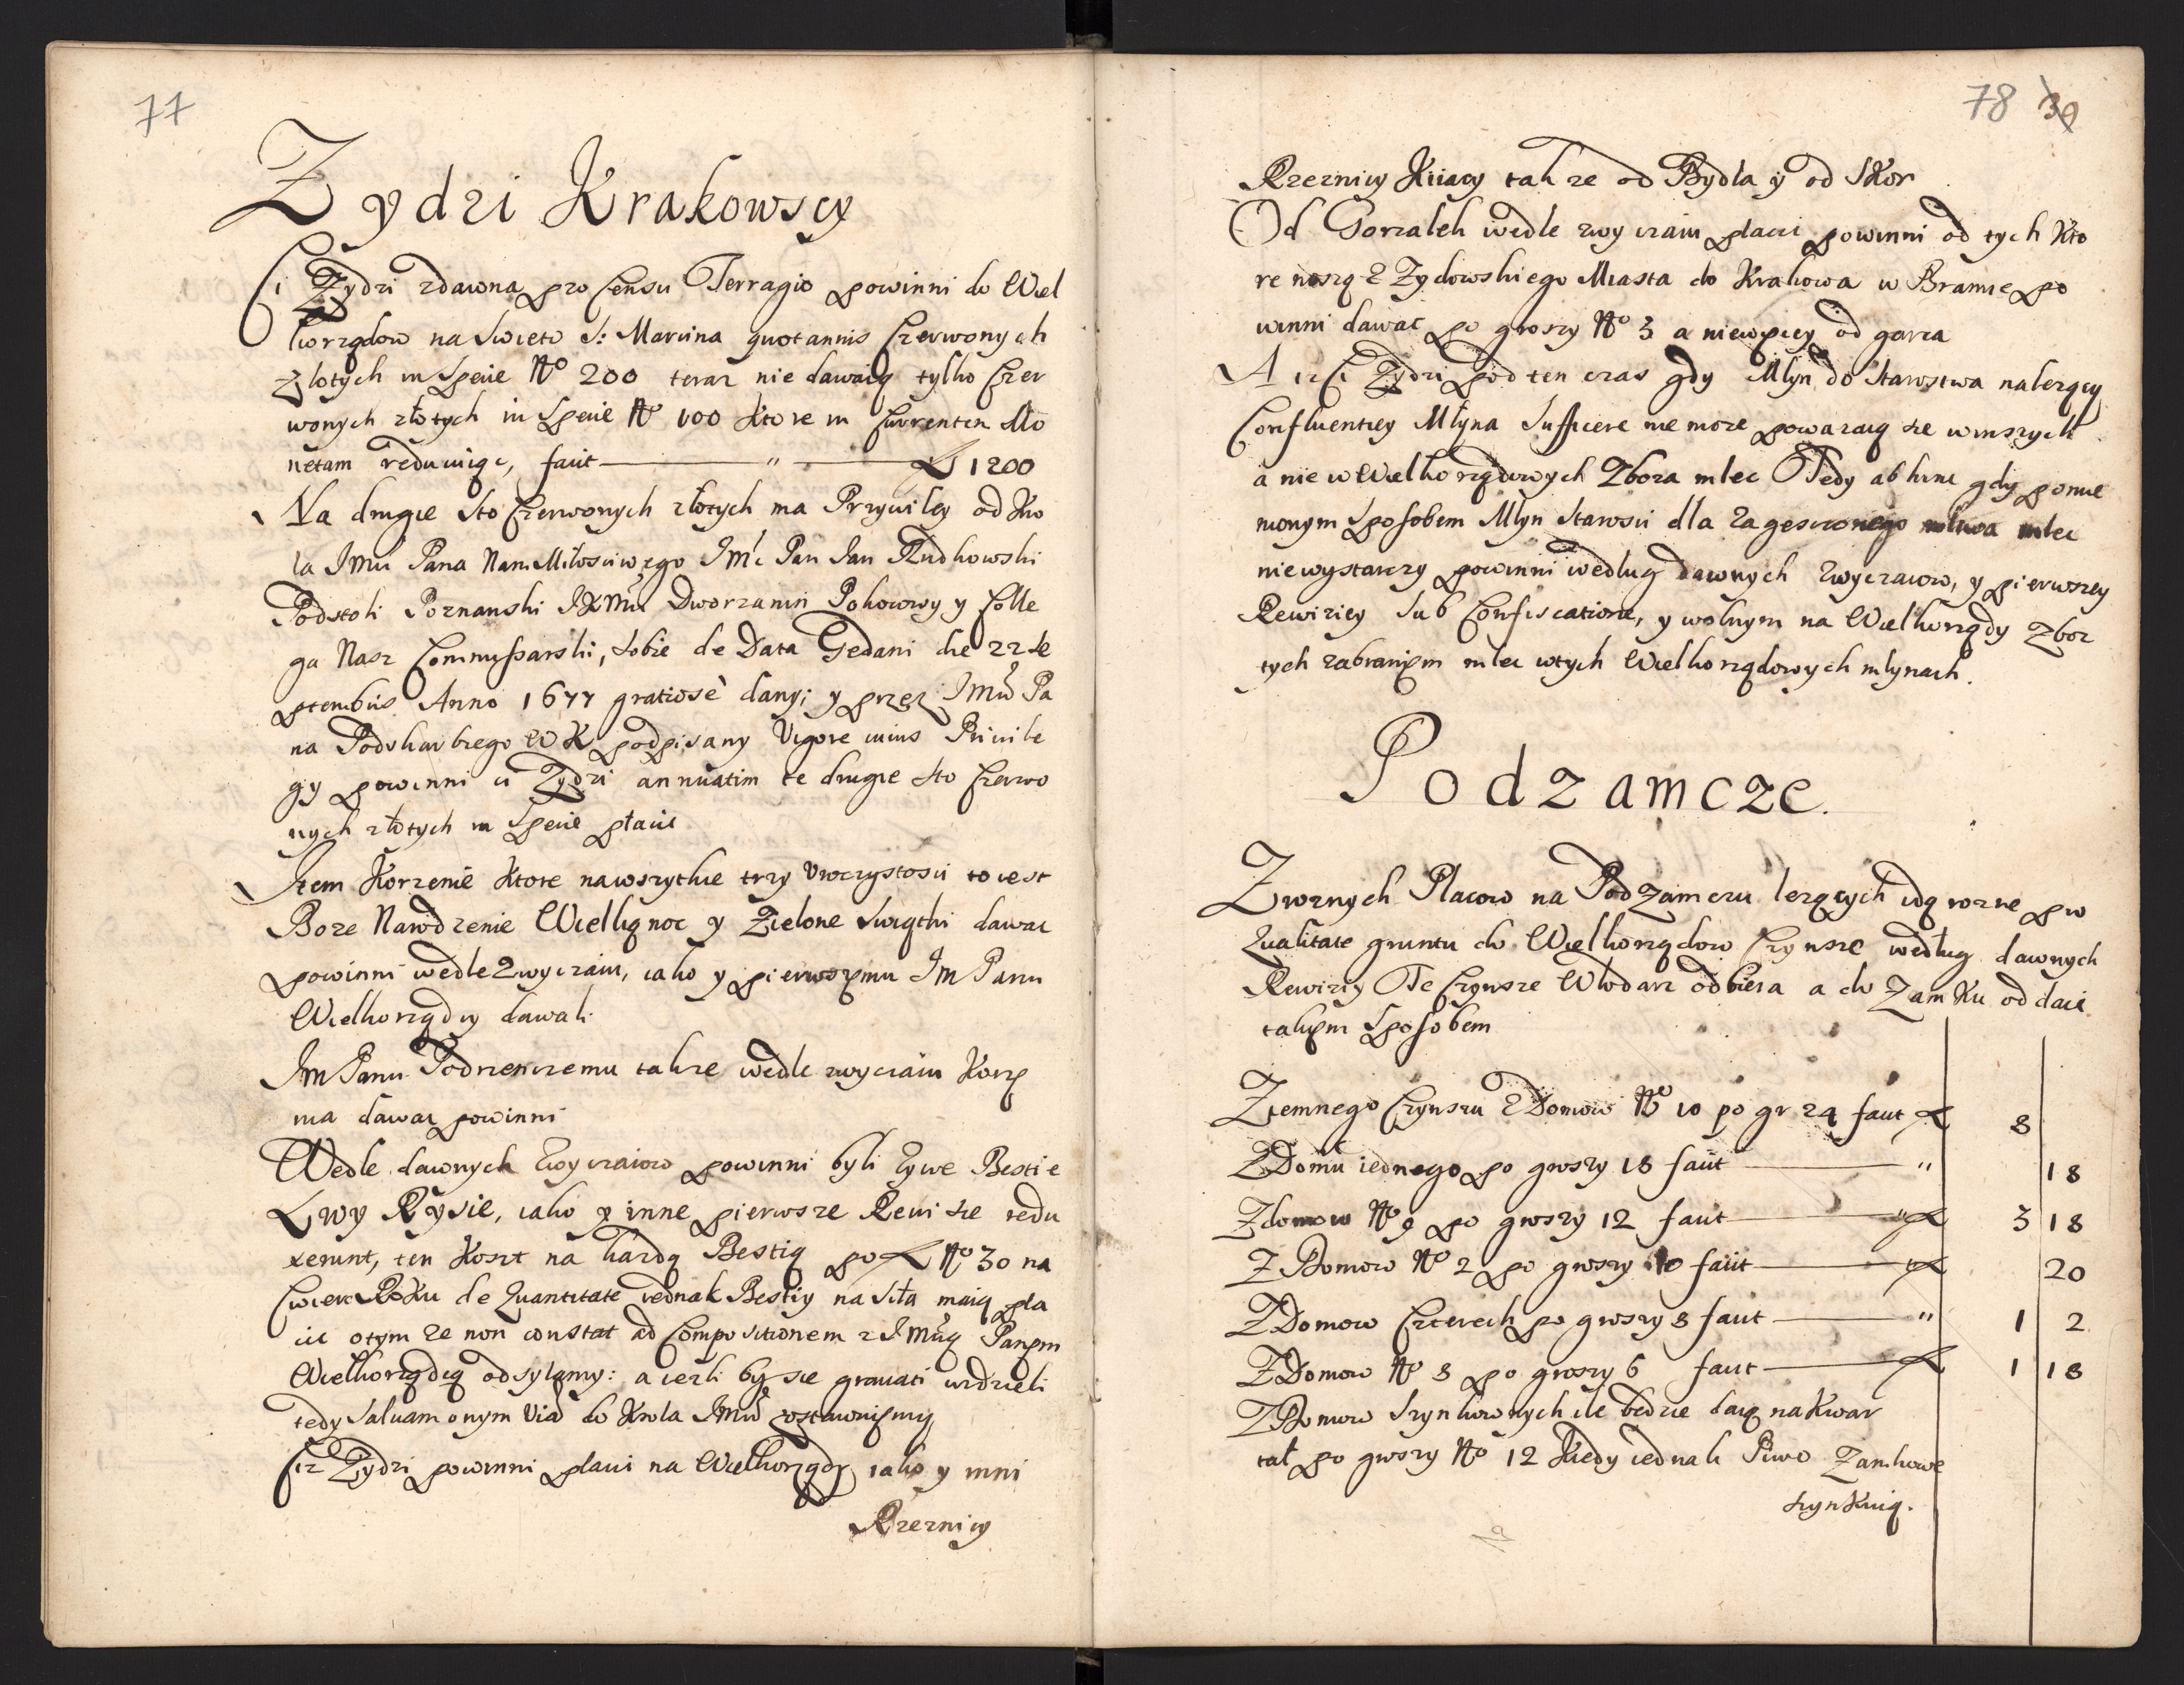 77
Zydzi Krakowscy
Ci Zydzi zdawna pro Censu Terragio powinni do Wiel
korządow na Swieto S: Marcina quotannis Czerwonych
złotych in Specie No 200 teraz nie dawaią tylko Czer
wonych złotych in Specie No 100 ktore in Currentem Mo
netam reducuiąc, facit — " — 1200
Na drugie Sto Czerwonych złotych ma Przywiley od Kro
la JMci Pana Nam Miłosciwego JMc Pan Jan Rudkowski
Podstoli Poznanski JKMci Dworzanin Pokoiowy y Colle
ga Nasz Commissarski, sobie de Data Gedani die 22 Se
ptembris Anno 1677 gratiosè dany; y przez JMci Pa
na Podskarbiego W K podpisany Vigore cuius Privile
gy powinni ci Zydzi annuatim te drugie sto Czerwo
nych złotych in Specie płacic
Item Korzenie ktore nawszytkie trzy Vroczystosci to iest
Boze Narodzenie Wielkąnoc y Zielone Swiątki dawac
powinni wedle Zwyczaiu, iako y pierwszemu Jm Panu
Wielkorządcy dawali
Jm Panu Podrzenczemu takze wedle zwyczaiu Korze
nia dawac powinni
Wedle dawnych Zwyczaiow powinni byli Zywe Bestie
Lwy Rysie, iako y inne pierwsze Rewisie redu
xerunt, ten koszt na kazdą Bestią po No 30 na
Cwierc Roku de Quantitate iednak Bestiy na siła maią pła
cic otym ze non constat ad Compositionem z JMcią Panem
Wielkorządcą odsyłamy: a iezli by sie gravati widzieli
tedy Saluam onym Via do Krola JMci zostawuiemy
Ciz Zydzi powinni płacic na Wielkorządy iako y inni
Rzeznicy
78 39
Rzeznicy Kiiacy takze od Bydła y od Skor
Od Gorzałek wedle zwyczaiu płacic powinni od tych kto
re noszą Z Zydowskiego Miasta do Krakowa w Bramie po
winni dawac po groszy No 3 a niewięcy od garca
A iz Ci Zydzi pod ten czas gdy Młyn do Starostwa nalezący
Confluentiey Młyna Sufficere nie moze powazaią sie winszych
a nie w Wielkorządowych Zboza mlec Tedy ab hinc gdy pomie
nionym Sposobem Młyn Starosci dla Zagesczonego mliwa mlec
niewystarczy powinni według dawnych Zwyczaiow, y pierwszey
Rewiziey Sub Confiscatione, y wolnym na Wielkorządy Zboz
tych zabraniem mlec wtych Wielkorządowych młynach.
Podzamcze.
Zroznych Placow na Podzamczu lezących idą rozne pro
Qualitate gruntu do Wielkorządow Czynsze według dawnych
Rewiziy Te Czynsze Włodarz odbiera a do Zamku oddaie
takiem Sposobem
Ziemnego Czynszu Z Domow No 10 po gr 24 facit 8
Z Domu iednego po groszy 18 facit — " 18
Z domow No 9 po groszy 12 facit — " 3 18
Z Domow No 2 po groszy 10 facit — 20
Z Domow Czterech po groszy 8 facit — " 1 2
Z Domow No 8 po groszy 6 facit — 1 18
Z Domow Szynkownych ile bedzie daią na Kwar
tał po groszy No 12 Kiedy iednak Piwo Zamkowe
szynkuią.